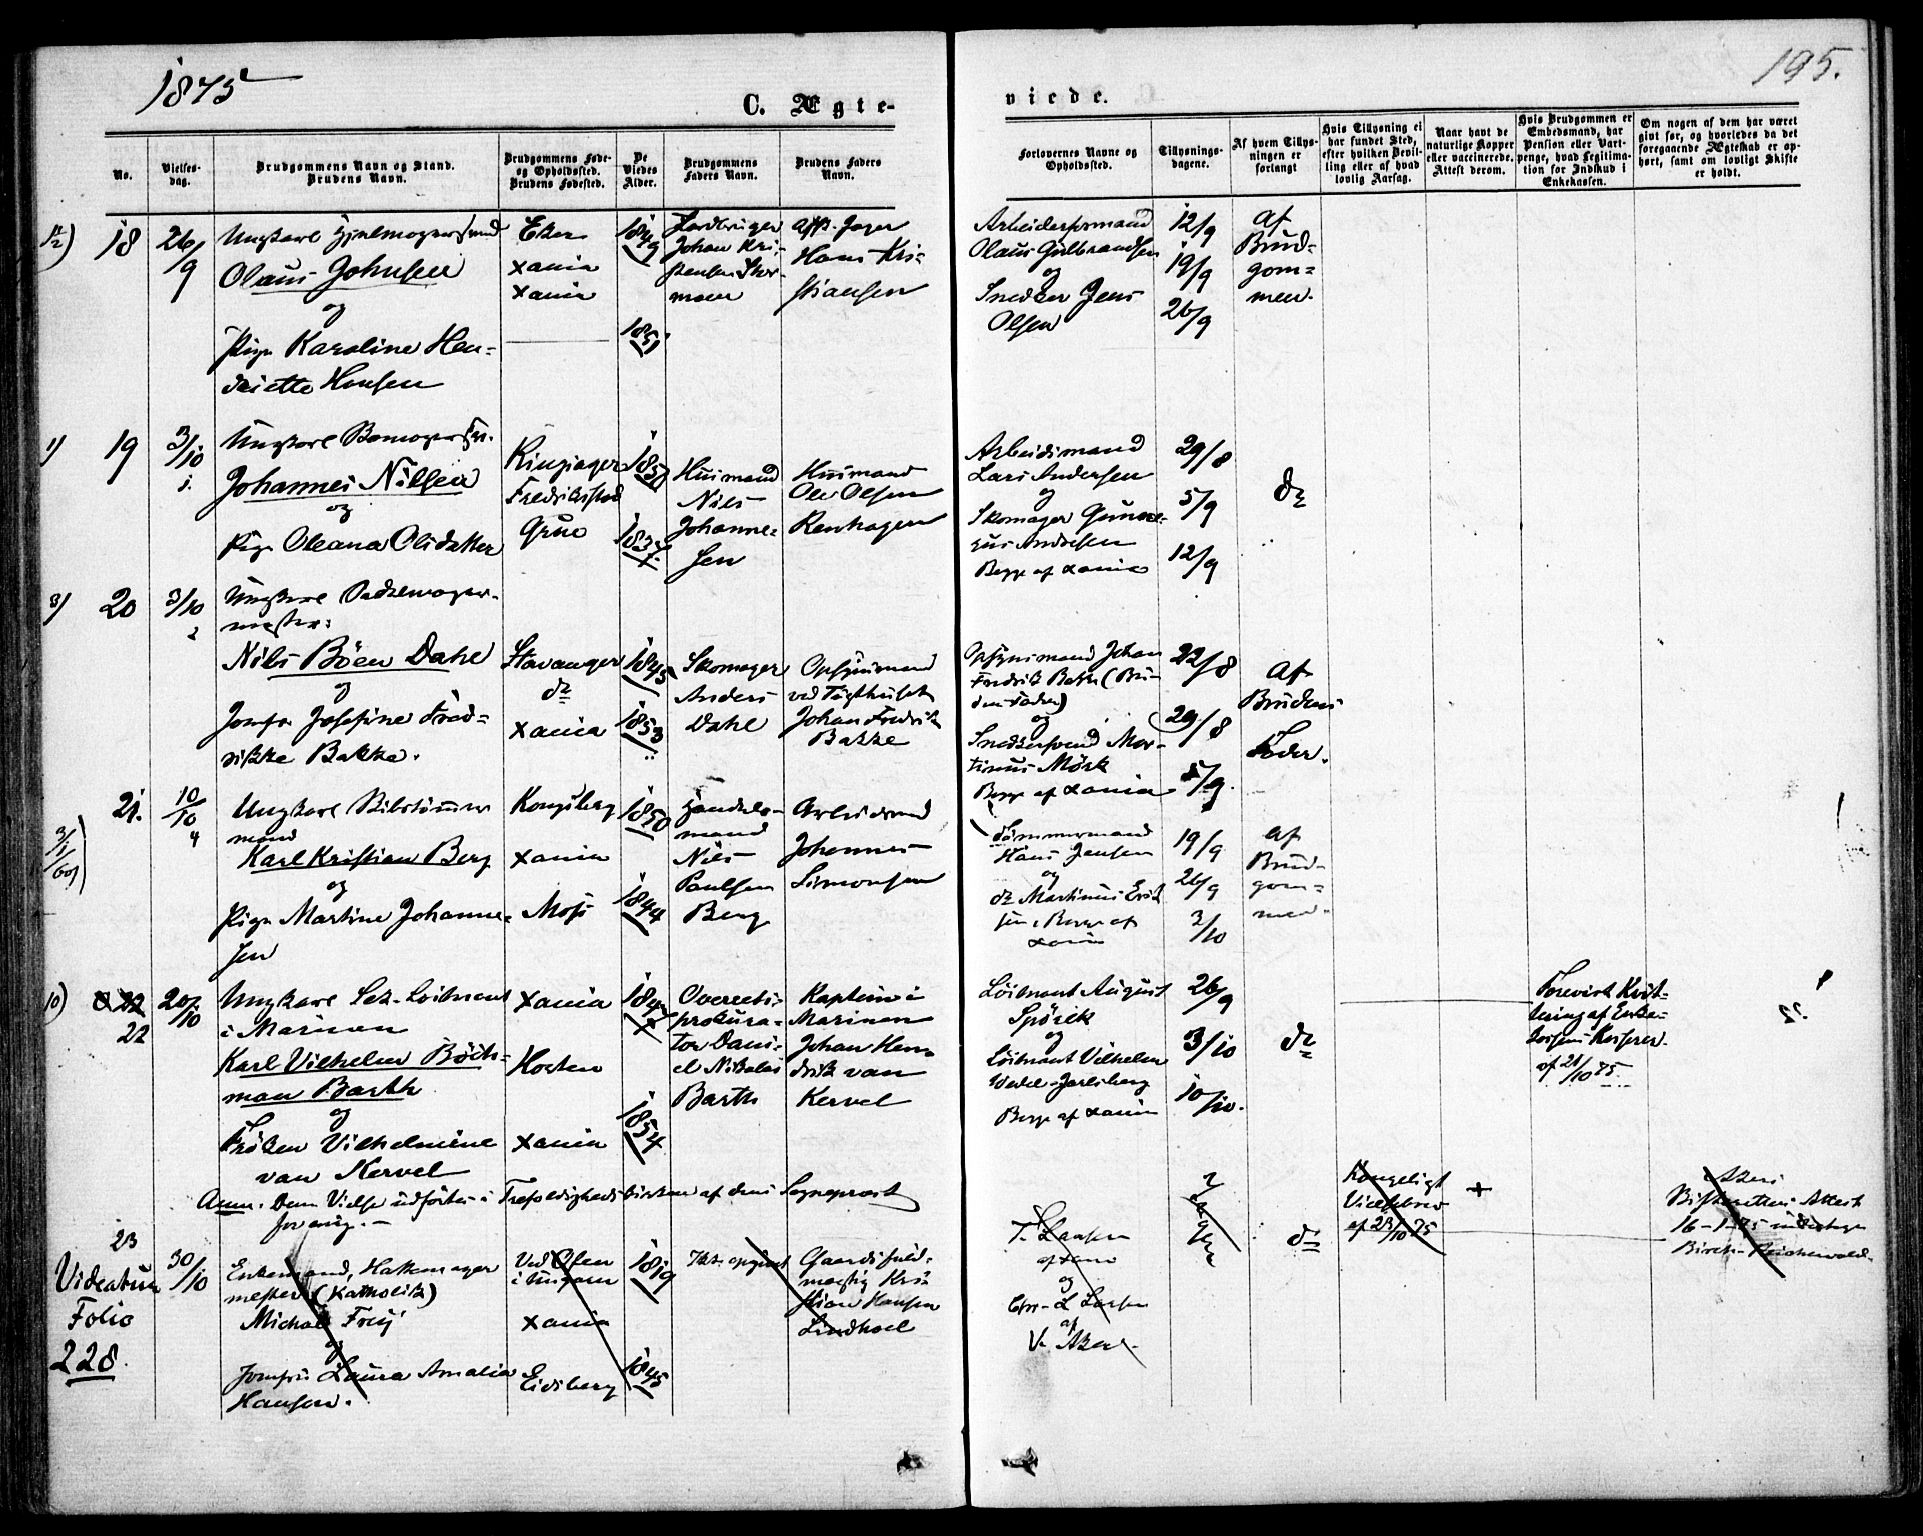 1875
195.
C. Ægte-
viede.
No.
Vielses-
dag.
Brudgommens Navn og Stand.
Brudens Navn.
Brudgommens Føde-
og Opholdssted.
Brudens Fødested.
De
Viedes
Alder.
Brudgommens
Faders Navn.
Brudens Faders
Navn.
Forlovernes Navne og
Opholdssted.
Tillysnings-
dagene.
Af hvem Tillys-
ningen er
forlangt
Hvis Tillysning ei
har fundet Sted,
efter hvilken Bevil-
ling eller af hvad
lovlig Aarsag.
Naar havt de
naturlige Kopper
eller vaccinerede.
Attest derom.
Hvis Brudgommen er
Embedsmand, har
Pension eller Vart-
penge, hvad Legitima-
tion for Indskud i
Enkekassen.
Om nogen af dem har været
gift før, og hvorledes da det
foregaaende Ægteskab er op-
hørt, samt om lovligt Skifte
er holdt.
18
26/9
Ungkarl Hjulmagersvend
Olaus Johnsen
og
Pige Karoline Hen-
driette Hansen
Eker
Xania
Xania
1849
1851
Johan Kri-
stensen
Hans Kri-
stiansen
Arbeidsformand
Olaus Gulbrandsen
og
Snedker Jens
Olsen
12/9
19/9
26/9
Af
Brud-
gom-
men.
1)
19
3/10
Ungkarl
Johannes Nilsen
og
Pige Oleana Olsdatter
Ringsager
Fredrikstad
Grue
1850
1837
Husmand
Nils
Johanne-
sen
Husmand
Ole Olsen
Renhagen
Arbeidsmand
Lars Andersen
og
Skomager Gunne-
rius Andresen
Begge af Xania
29/8
5/9
12/9
do
3)
20
3/10
2
Ungkarl
mester
Nils Böen Dahl
og
Jomfru Josefine Fred-
rikke Bakke.
Stavanger
do
Xania
1845
1853
Skomager
Anders
Dahl
Opsynsmand
ved Tugthuset
Johan Fredrik
Bakke
Opsynsmand Johan
Fredrik Bakke (Bru-
dens Fader)
og
Snedkersvend Mar-
tinus Mörk
Begge af Xania
22/8
29/8
5/9.
Af
Brudens
Fader.
21.
10/10
4
Ungkarl Bibstömmer
mand
Karl Kristian Berg
og
Pige Martine Johanne-
sen
Kongsberg
Xania
Moss
1850
1844
Handels-
mand
Nils
Paulsen
Berg
Arbeidsmand
Johannes
Simonsen
Tömmermand
Hans Jensen
og
do Martinus Erik
sen, Begge af
Xania
19/9
26/9
3/10
Af
Brud-
gom-
men.
10)
22
20/10
Ungkarl Sek-Loitnant
i Marinen
Karl Vilhelm Böck-
man Barth
og
Fröken Vilhelmine
van Kervel
Xania
Horten
Xania
1847
1854
Overrets-
prokura-
tor Dani-
el Nikolai
Barth
Kaptein i
Marinen
Johan Hen-
drik van
Kervel
Loitnant August
Spörck
og
Loitnant Vilhelm
Wedel-Jarlsberg
Begge af Xania
26/9
3/10
10/10.
do
Forevist Kvit-
tering af Enke-
kassens Kasserer
af 21/10 75
Anm. Denne Vielse udförtes i Trefoldighedskirken af dens Sogneprest
23
Videatur
Folio
228.
30/10
Enkemand, Hattemager
mester (Katholik)
Michal Frey
og
Jomfru Laura Amalia
Hansen.
Ved Ofen
i Ungarn
Xania
Eidsberg
1819
1845
Ikke opgivet
Gaardsfuld-
mægtig Kri-
stian Hansen
Lindhoel
T. Larsen
af Xania
og
Chr. L Larsen
af
V. Aker
Ingen
do
Kongeligt
Vielsebrev
af 23/10 75
+
Akers
Skifterettens Attest
16-1-75